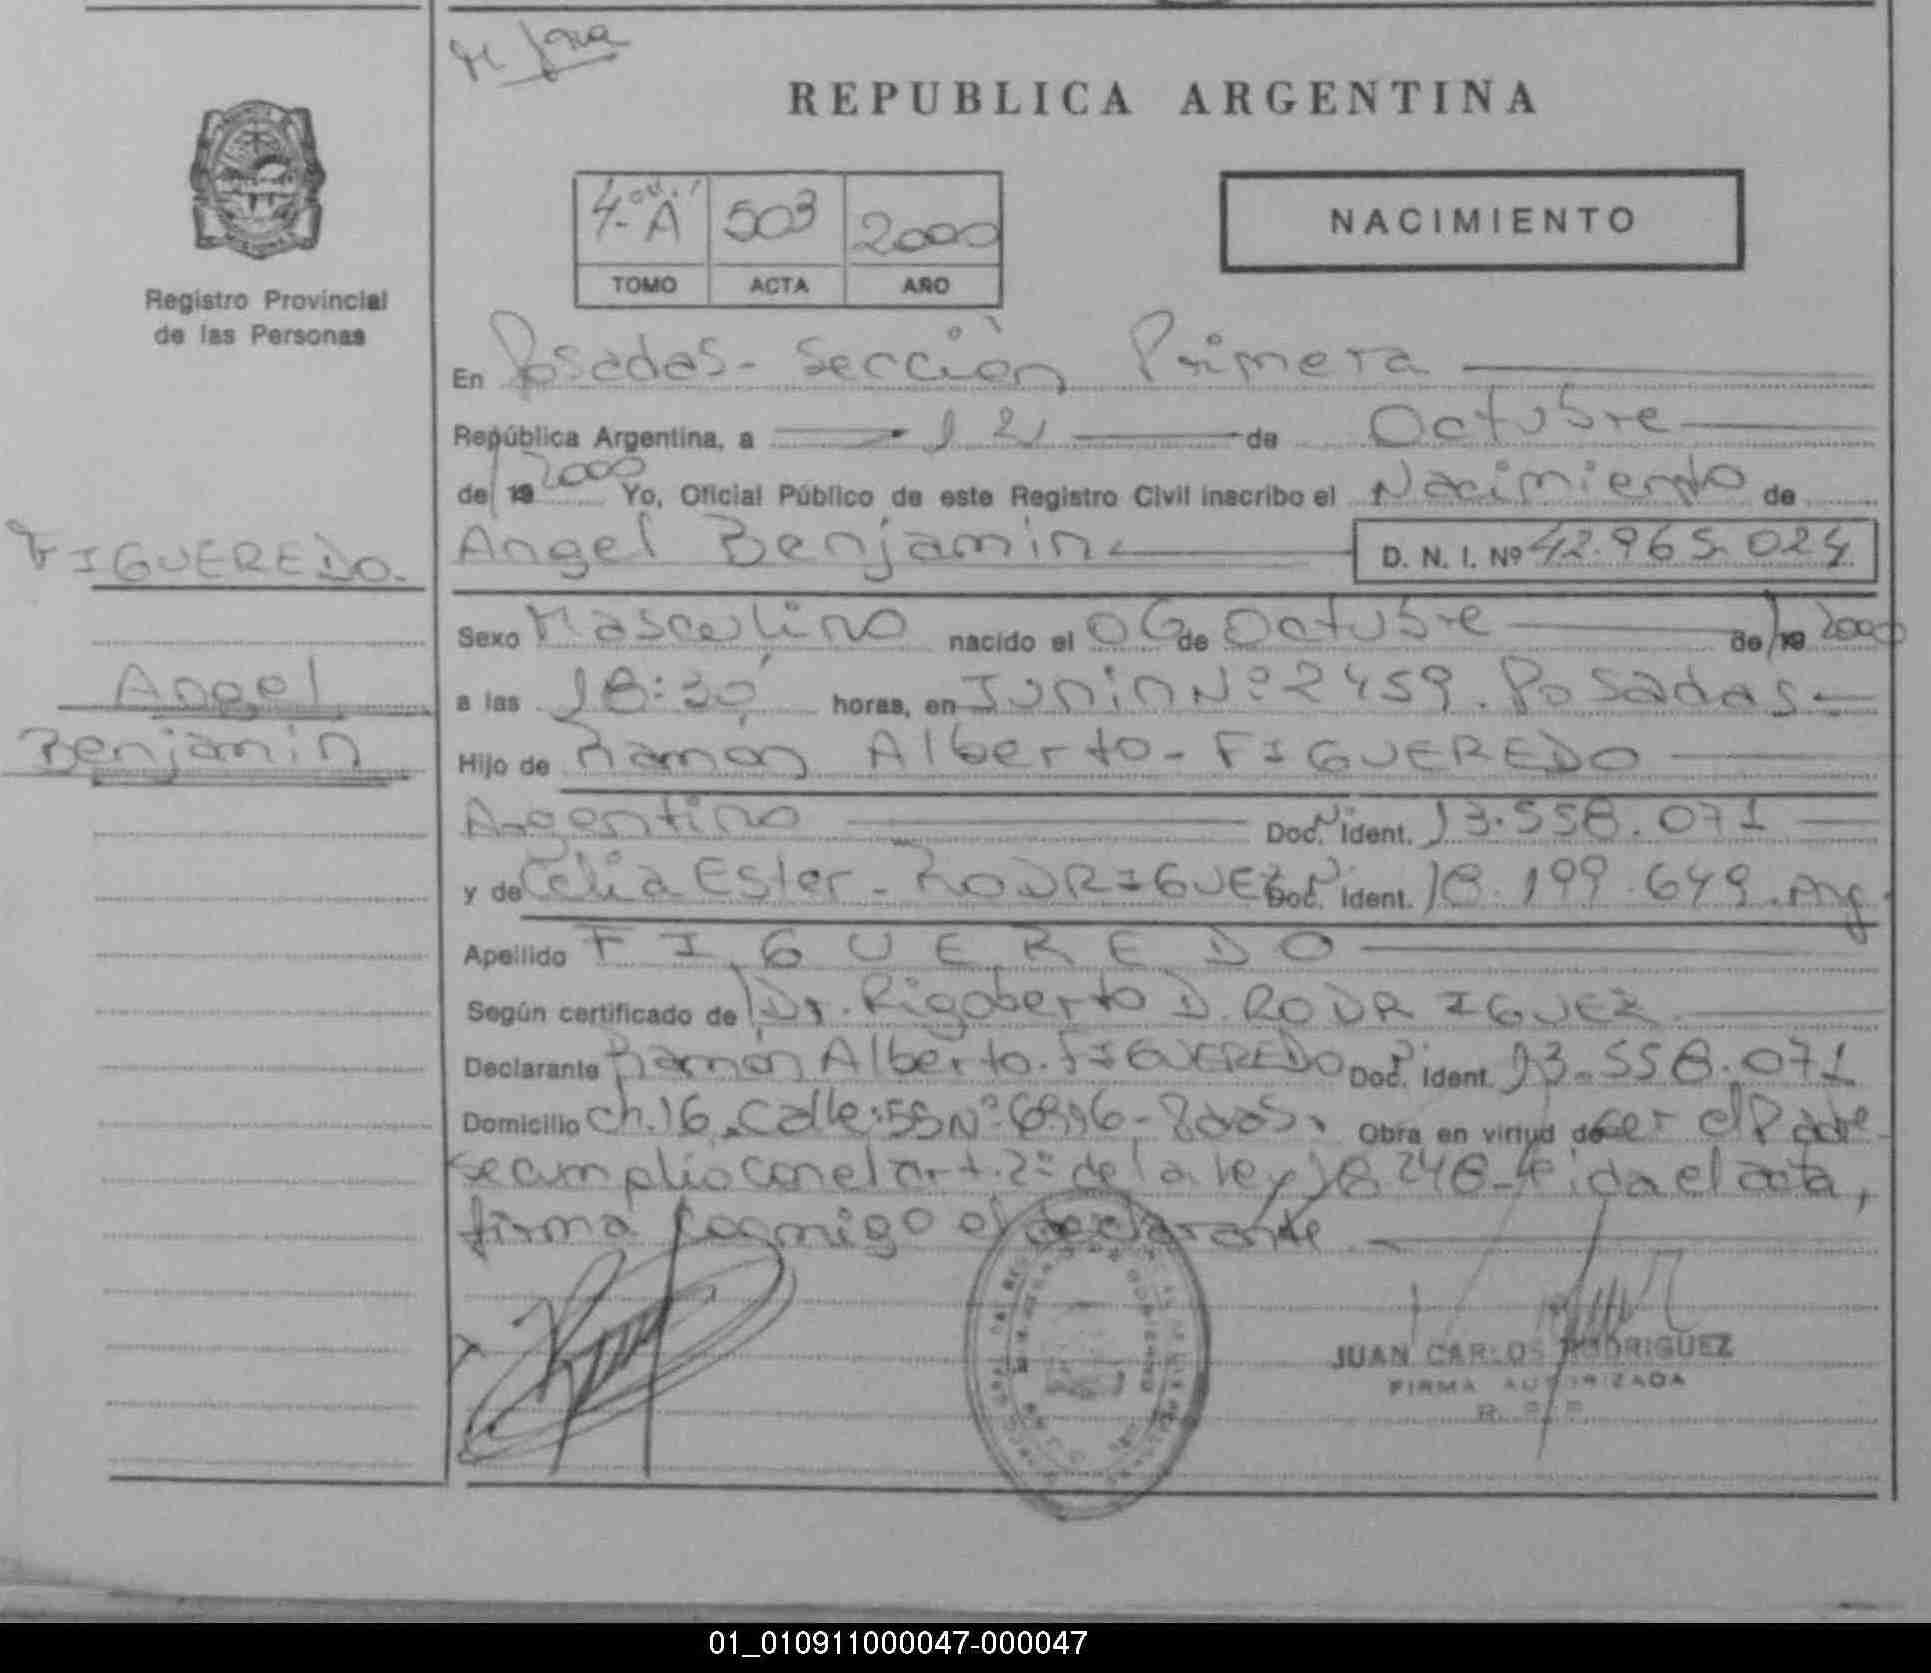 REPUBLICA ARGENTINA
4. A 503 2000
TOMO ACTA AÑO
NACIMIENTO
Registro Provincial
de las Personas
En Posadas - Sección Primera
República Argentina, a 12 de Octubre
de 19 2000 Yo, Oficial Público de este Registro Civil inscribo el Nacimiento de
FIGUEREDO.
Angel Benjamin D. N. I. Nº 42.965.024
Sexo Masculino nacido el 06 de Octubre de 19 2000
Angel
a las 18:30 horas, en Junin Nº 2459. Posadas
Benjamin
Hijo de Ramón Alberto - FIGUEREDO
Argentino Doc. Ident. 13.558.071
y de Celia Ester - RODRIGUEZ Doc. Ident. 18.199.649. Arg.
Apellido FIGUEREDO
Según certificado de Dr. Rigoberto D. RODRIGUEZ
Declarante Ramón Alberto. FIGUEREDO Doc. Ident. 13.558.071
Domicilio ch. 16. Calle: 55 Nº Obra en virtud de ser el Padre
se cumplio con el art. 2º de la ley 18.248 - leida el acta,
firma conmigo el declarante
JUAN CARLOS RODRIGUEZ
FIRMA AUTORIZADA
R. P. P.
01_010911000047-000047